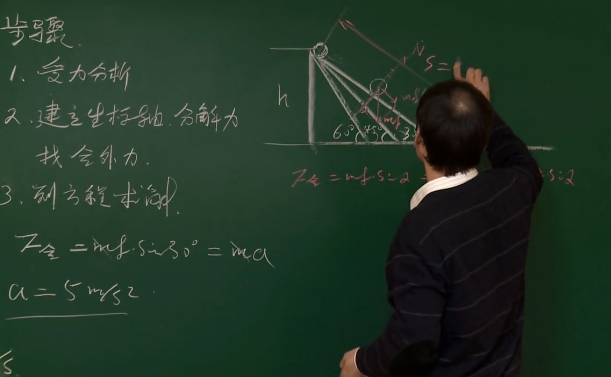 步骤.
1. 受力分析
2. 建立坐标轴.分解力
找合外力.
3. 列方程求解.
F合 = mg·sin30° = ma
a = 5 m/s²
h
60°
45°
N
S =
F合 = mg·sin2 =
sin2